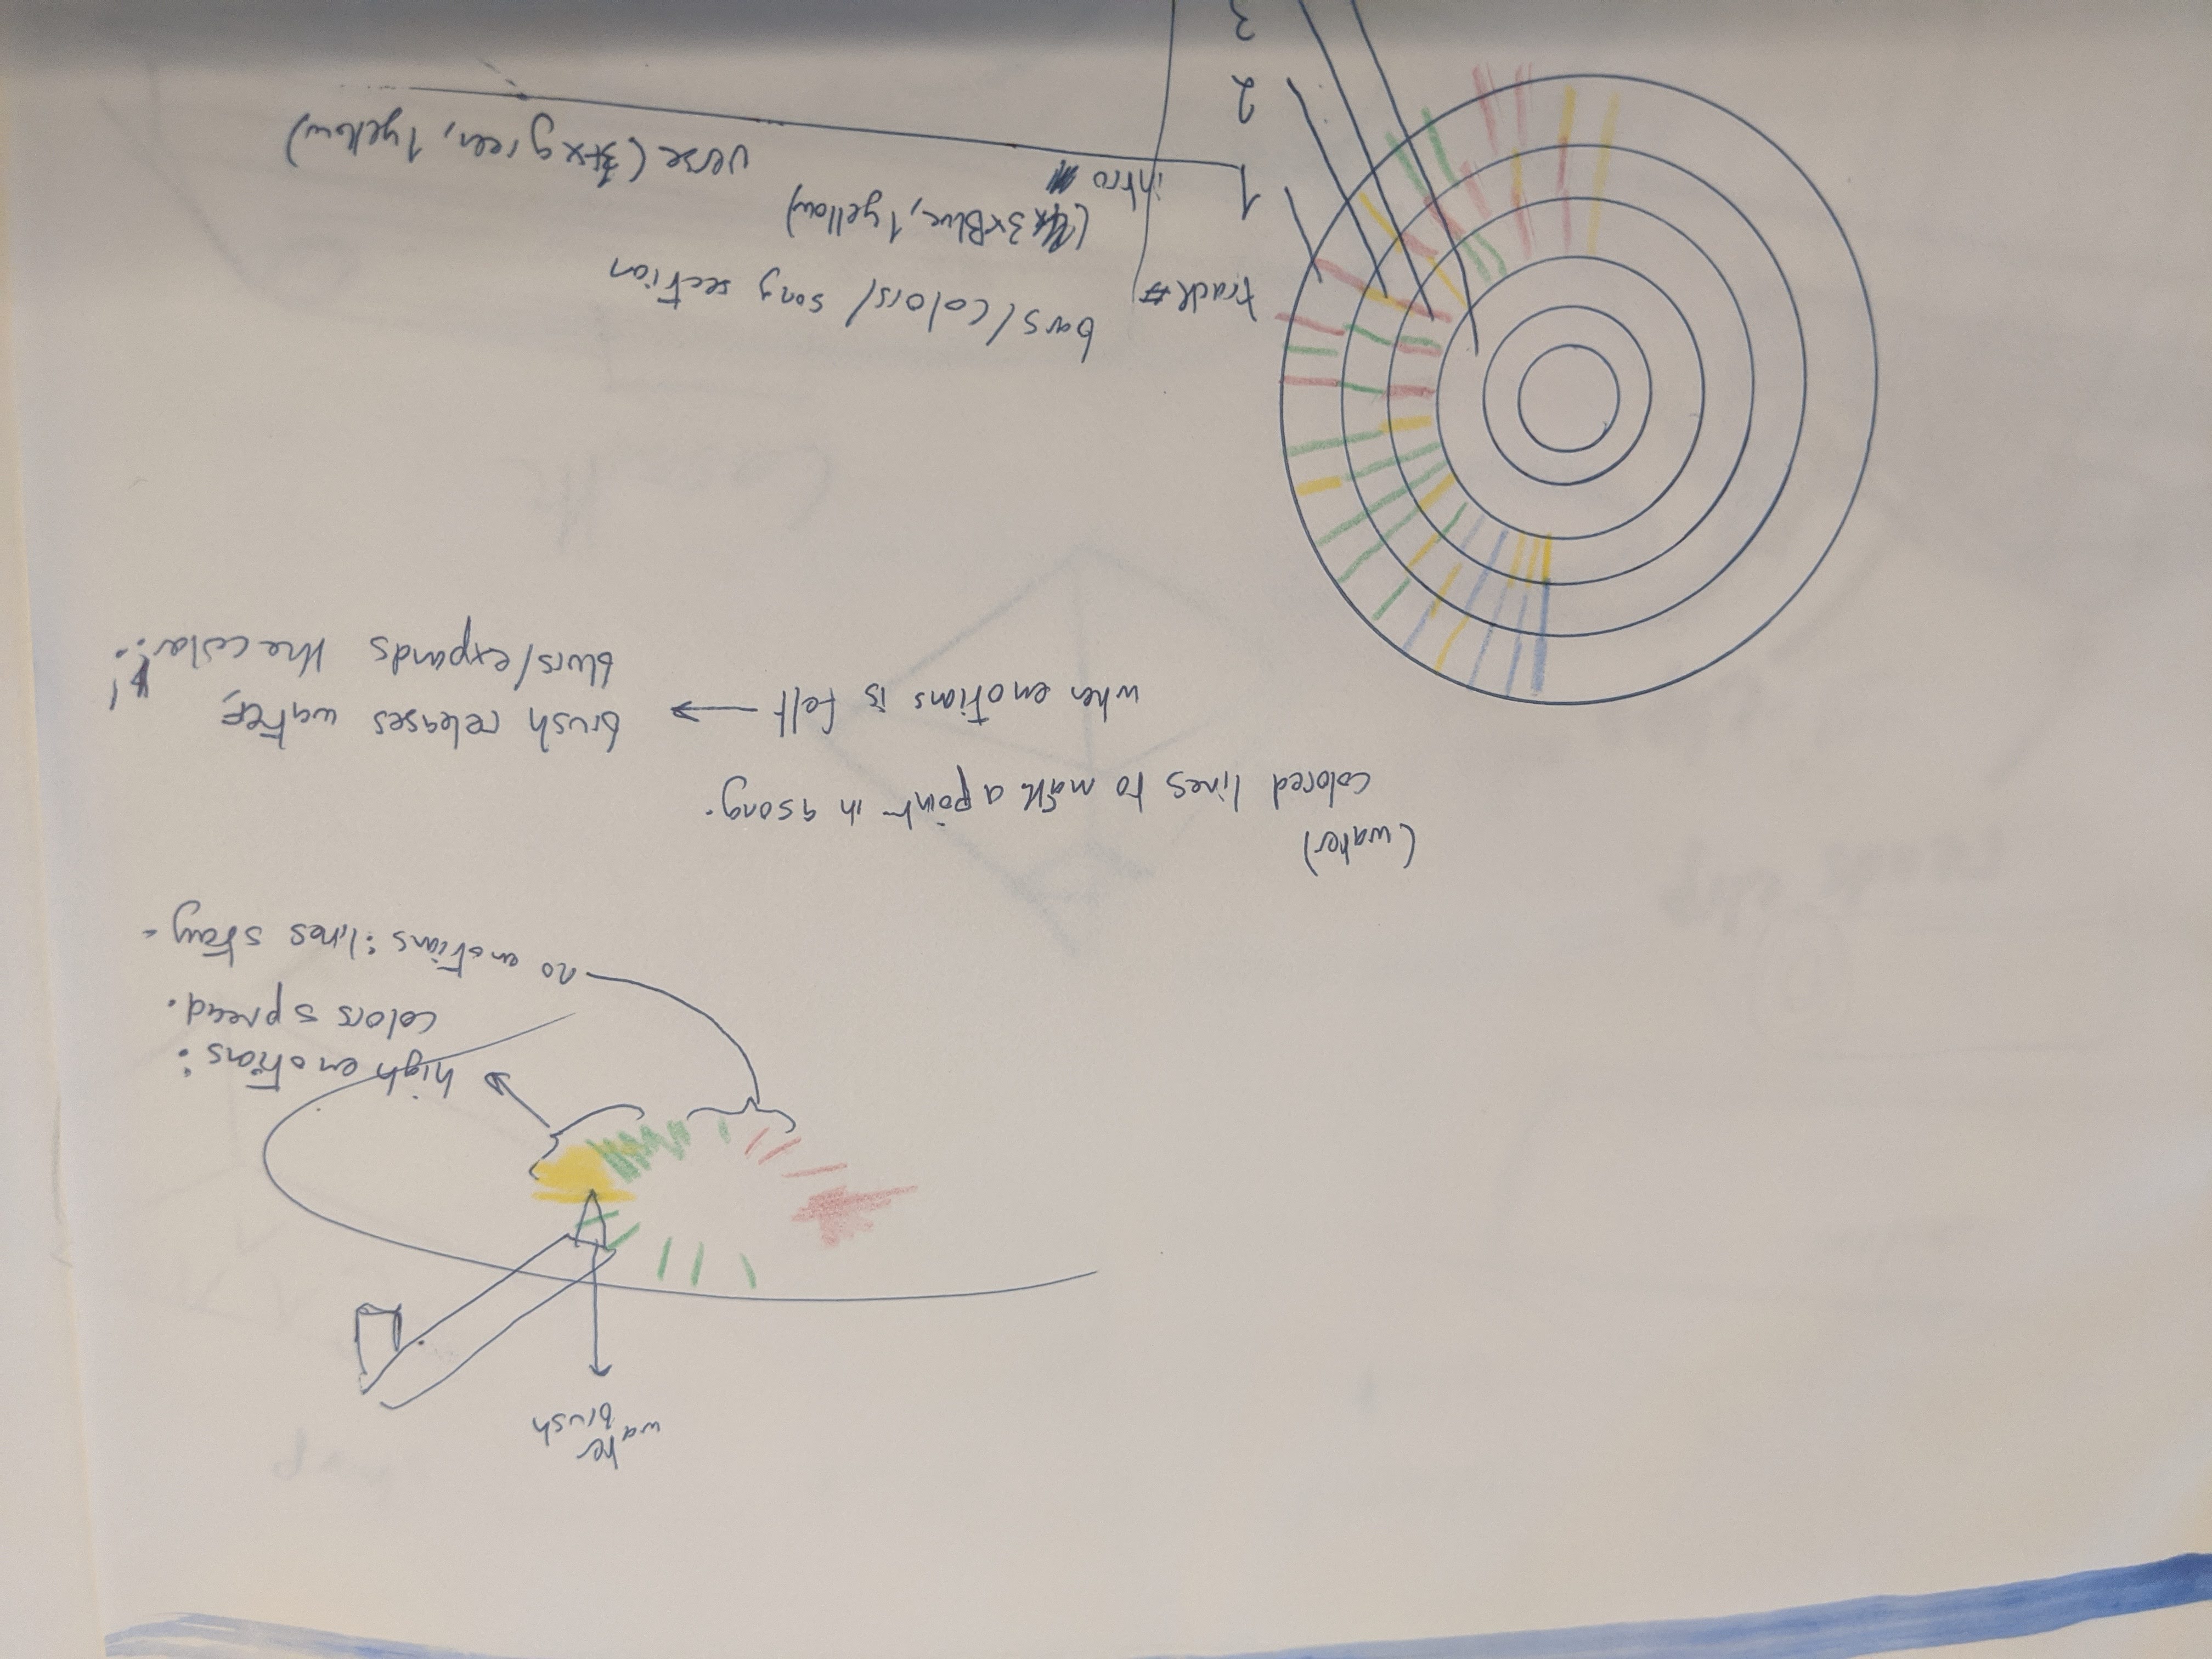 water
brush
high emotions:
colors spread.
no emotions: lines stay-
(water)
colored lines to mark a point in a song.
when emotions is felt → brush releases water,
blurs/expands the color.
track # bars/colors/song section
(3xBlue, 1yellow)
1 intro verse (3x green, 1yellow)
2
3